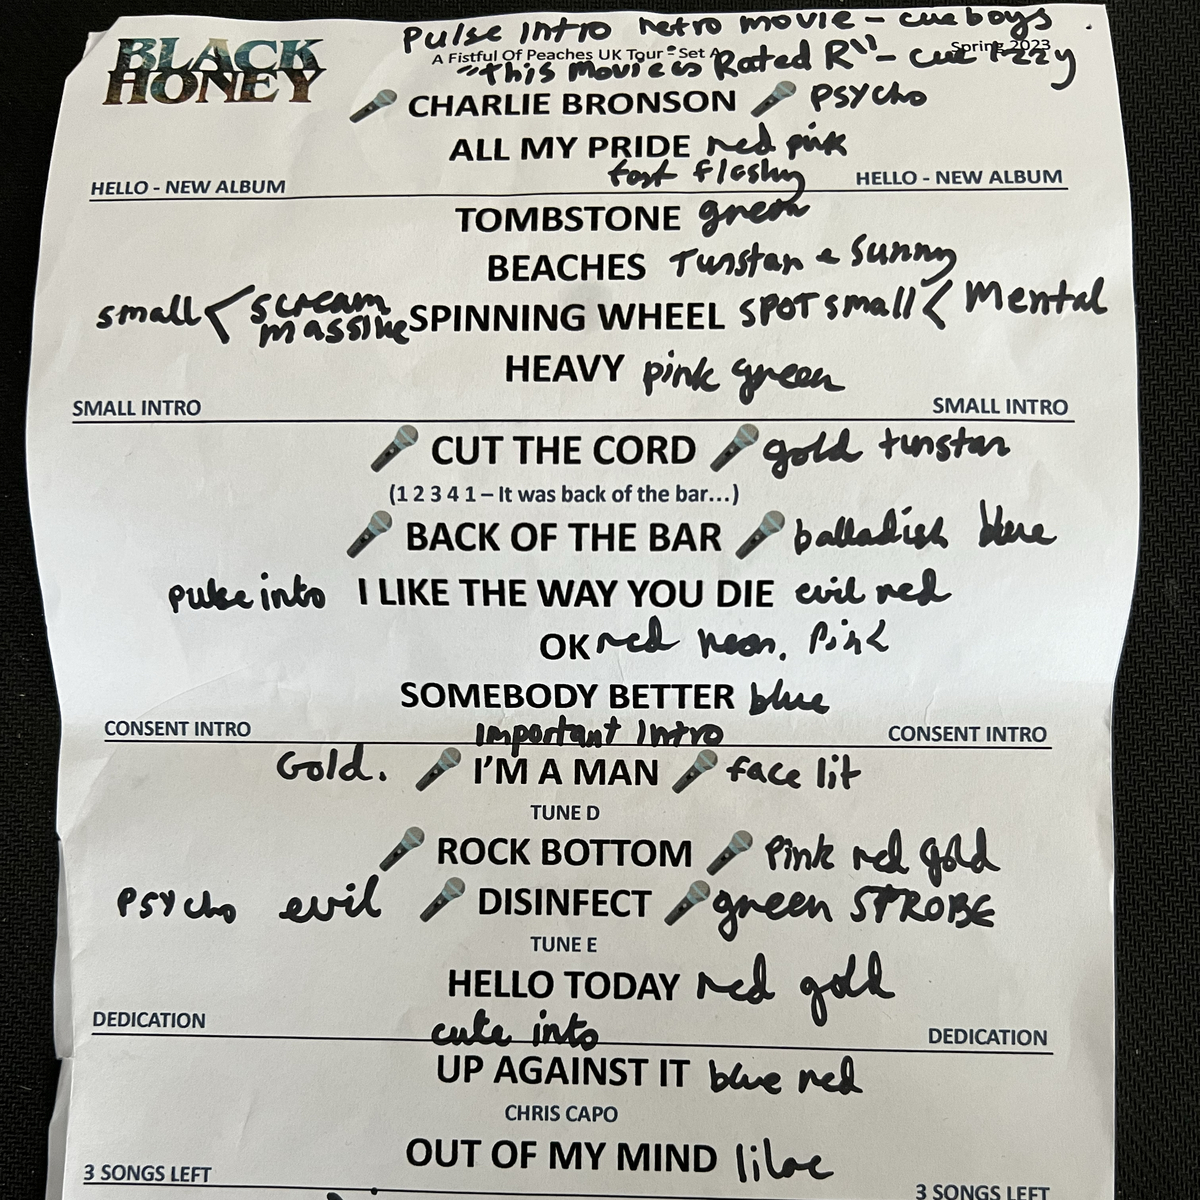 Pulse Intro retro movie - cue boys
BLACK HONEY
A Fistful Of Peaches UK Tour - Set A
Spring 2023
"This Movie is Rated R" - cue Izzy
CHARLIE BRONSON psycho
ALL MY PRIDE red pink
fast flashy
HELLO - NEW ALBUM HELLO - NEW ALBUM
TOMBSTONE green
BEACHES Tunstan & Sunny
small < scream massive SPINNING WHEEL SPOT small < Mental
HEAVY pink green
SMALL INTRO SMALL INTRO
CUT THE CORD gold tunstan
(1 2 3 4 1 – It was back of the bar…)
BACK OF THE BAR balladish blue
pulse into I LIKE THE WAY YOU DIE evil red
OK red neon. Pink
SOMEBODY BETTER blue
CONSENT INTRO Important Intro CONSENT INTRO
Gold. I'M A MAN face lit
TUNE D
ROCK BOTTOM Pink red gold
Psycho evil DISINFECT green STROBE
TUNE E
HELLO TODAY red gold
DEDICATION cute into DEDICATION
UP AGAINST IT blue red
CHRIS CAPO
OUT OF MY MIND lilac
3 SONGS LEFT 3 SONGS LEFT